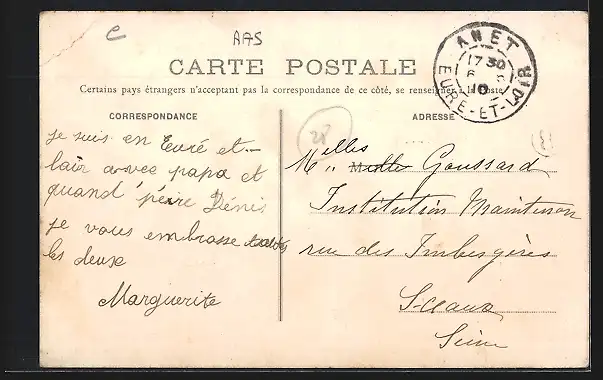 C
AAS
CARTE POSTALE
Certains pays étrangers n'acceptant pas la correspondance de ce côté, se renseigner à la Poste
ANET
17 30
6
10
EURE-ET-LOIR
CORRESPONDANCE
je suis en Eure et-
loir avec papa et
quand père Dénis
je vous embrasse toutes
les deuse
Marguerite
28
ADRESSE
Melles Goussard
Institution Maintenon
rue des Imbergères
Sceaux
Seine